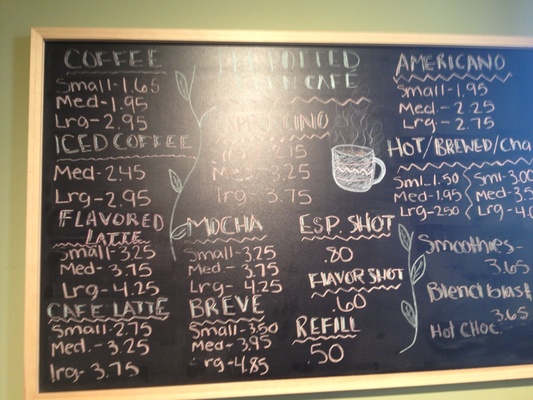 COFFEE
Small-1.65
Med-1.95
Lrg-2.95
ICED COFFEE
Med-2.45
Lrg-2.95
FLAVORED
LATTE
Small-3.25
Med-3.75
Lrg-4.25
CAFE LATTE
Small-2.75
Med.-3.25
lrg-3.75
POTTED
CAFÉ
CAPPUCCINO
Med-3.25
lrg-3.75
MOCHA
Small-3.25
Med-3.75
Lrg-4.25
BREVE
Small-3.50
Med-3.95
Lrg-4.85
ESP. SHOT
.80
FLAVOR SHOT
.60
REFILL
.50
AMERICANO
Small-1.95
Med.-2.25
Lrg-2.75
HOT/BREWED/Cha
Sml-1.50 Sml-3.00
Med-1.95 Med-3.5
Lrg-2.50 Lrg-4.0
Smoothies-
3.65
3.65
Hot Choc.